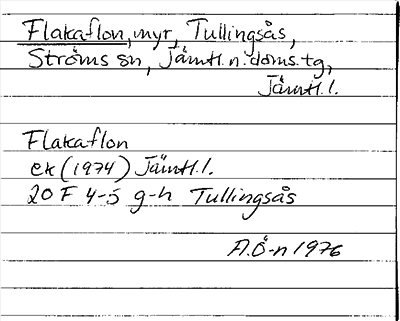 Flakaflon, myr, Tullingsås,
Ströms sn, Jämtl. n. doms. tg,
Jämtl. l.
Flakaflon
ek (1974) Jämtl. l.
20 F 4-5 g-h Tullingsås
A.Ö-n 1976